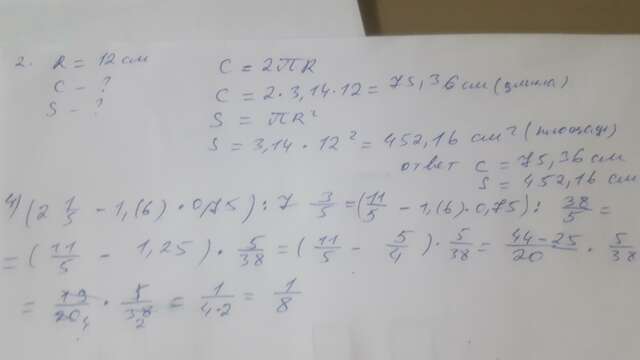 2. R = 12 см
C - ?
S - ?
C = 2πR
C = 2 · 3,14 · 12 = 75,36 см (длина)
S = πR²
S = 3,14 · 12² = 452,16 см² (площадь)
ответ C = 75,36 см
S = 452,16 см
4) (2 1/5 - 1,(6) · 0,75) : 7 3/5 = (11/5 - 1,(6) · 0,75) : 38/5 =
= (11/5 - 1,25) · 5/38 = (11/5 - 5/4) · 5/38 = 44-25/20 · 5/38
= 19/20 4 · 5/38 2 = 1/4·2 = 1/8